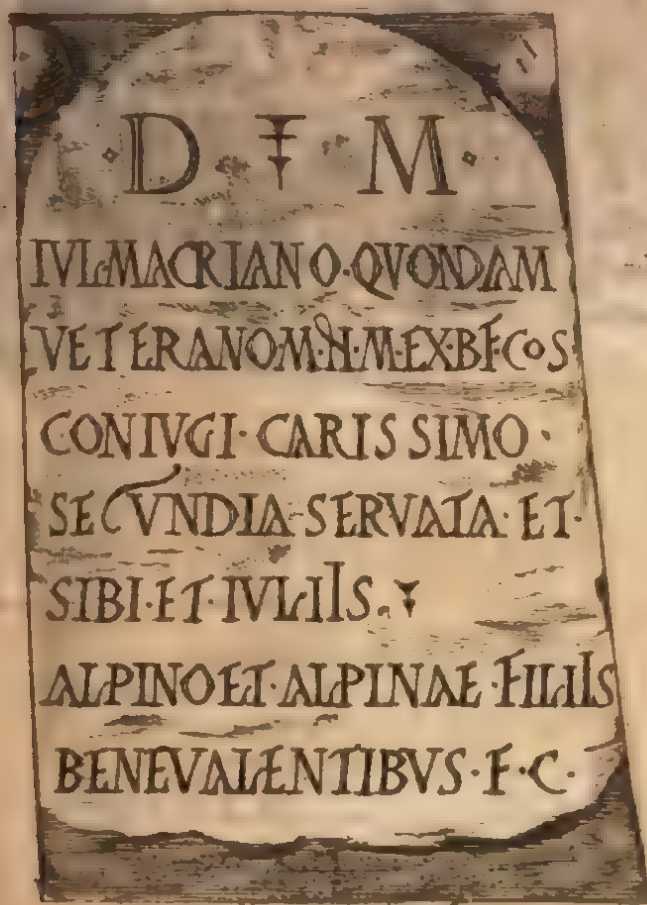 · D · M ·
IVL·MACRIANO·QVONDAM
VETERANO·M·H·M·EX·BF·COS·
CONIVGI· CARISSIMO ·
SECVNDIA·SERVATA· ET·
SIBI·ET·IVLIIS·
ALPINO ET·ALPINAE·FILIIS
BENEVALENTIBVS·F·C·